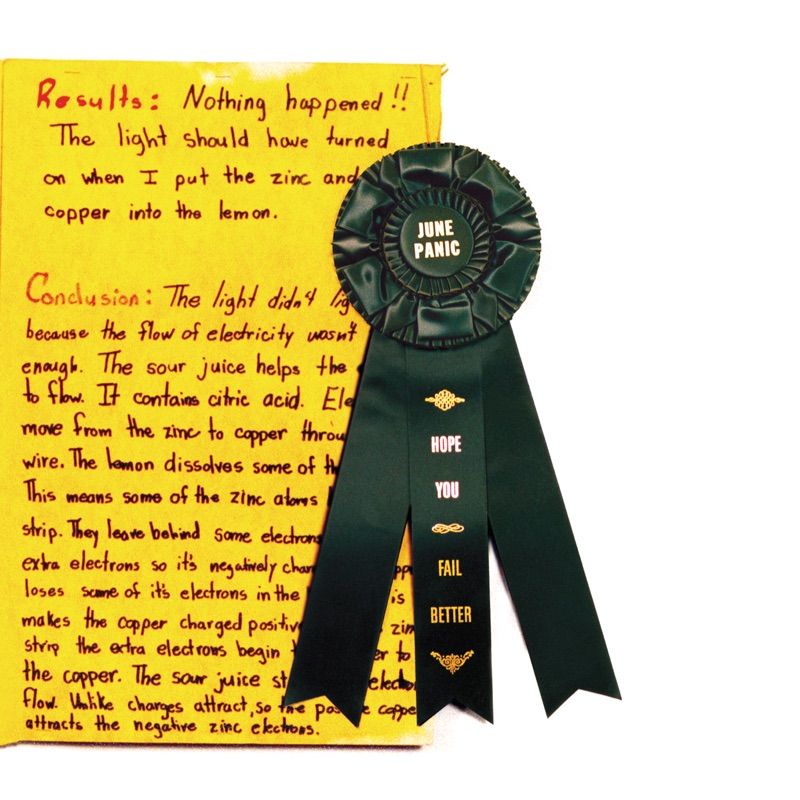 Results: Nothing happened!!
The light should have turned
on when I put the zinc and
copper into the lemon.
Conclusion: The light didn't lig
because the flow of electricity wasn't
enough. The sour juice helps the
to flow. It contains citric acid. Ele
move from the zinc to copper throu
wire. The lemon dissolves some of th
This means some of the zinc atoms
strip. They leave behind some electrons
extra electrons so it's negatively char
loses some of it's electrons in the is
makes the copper charged positiv zin
strip the extra electrons begin to
the copper. The sour juice st electro
flow. Unlike charges attract, so the pos e coppe
attracts the negative zinc electrons.
JUNE
PANIC
HOPE
YOU
FAIL
BETTER